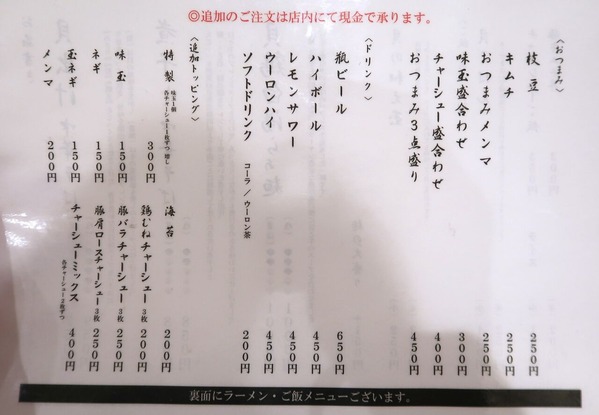 ◎追加のご注文は店内にて現金で承ります。
〈おつまみ〉
枝豆 250円
キムチ 250円
おつまみメンマ 250円
味玉盛合わせ 300円
チャーシュー盛合わせ 400円
おつまみ3点盛り 450円
〈ドリンク〉
瓶ビール 650円
ハイボール 450円
レモンサワー 450円
ウーロンハイ 450円
ソフトドリンク コーラ／ウーロン茶 200円
〈追加トッピング〉
特製 味玉1個 各チャーシュー1枚ずつ 増し 300円
味玉 150円
ネギ 150円
玉ネギ 150円
メンマ 200円
海苔 200円
鶏むねチャーシュー3枚 200円
豚バラチャーシュー3枚 250円
豚肩ロースチャーシュー3枚 250円
チャーシューミックス 各チャーシュー2枚ずつ 400円
裏面にラーメン・ご飯メニューございます。